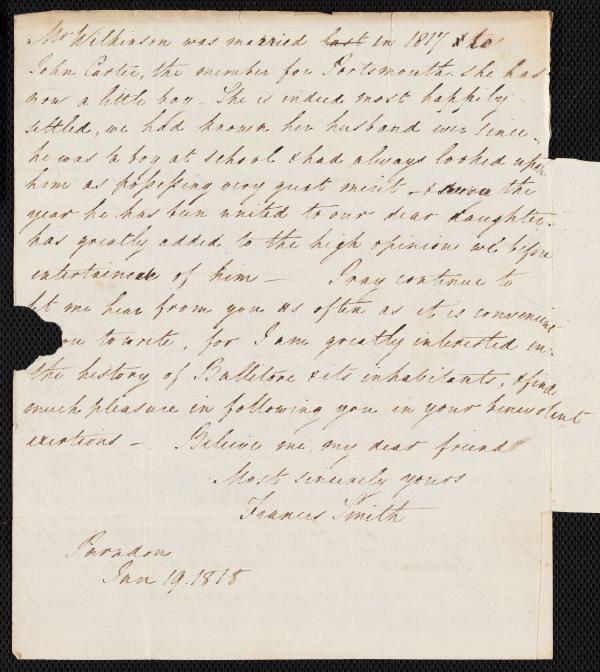 Mr Wilkinson was married last in 1817 & to
John Carter, the member for Portsmouth. She has
now a little boy - She is indeed most happily
settled, we had known her husband ever since
he was a boy at school & had always looked upon
him as possessing very great merit - & the
year he has been united to our dear daughter
has greatly added to the high opinion we before
entertained of him - Pray continue to
let me hear from you as often as it is convenient
you to write, for I am greatly interested in
the history of Ballitore & its inhabitants, & find
much pleasure in following you in your benevolent
exertions - Believe me, my dear friend
Most sincerely yours
Francis Smith
Parndon
Jan 19. 1818